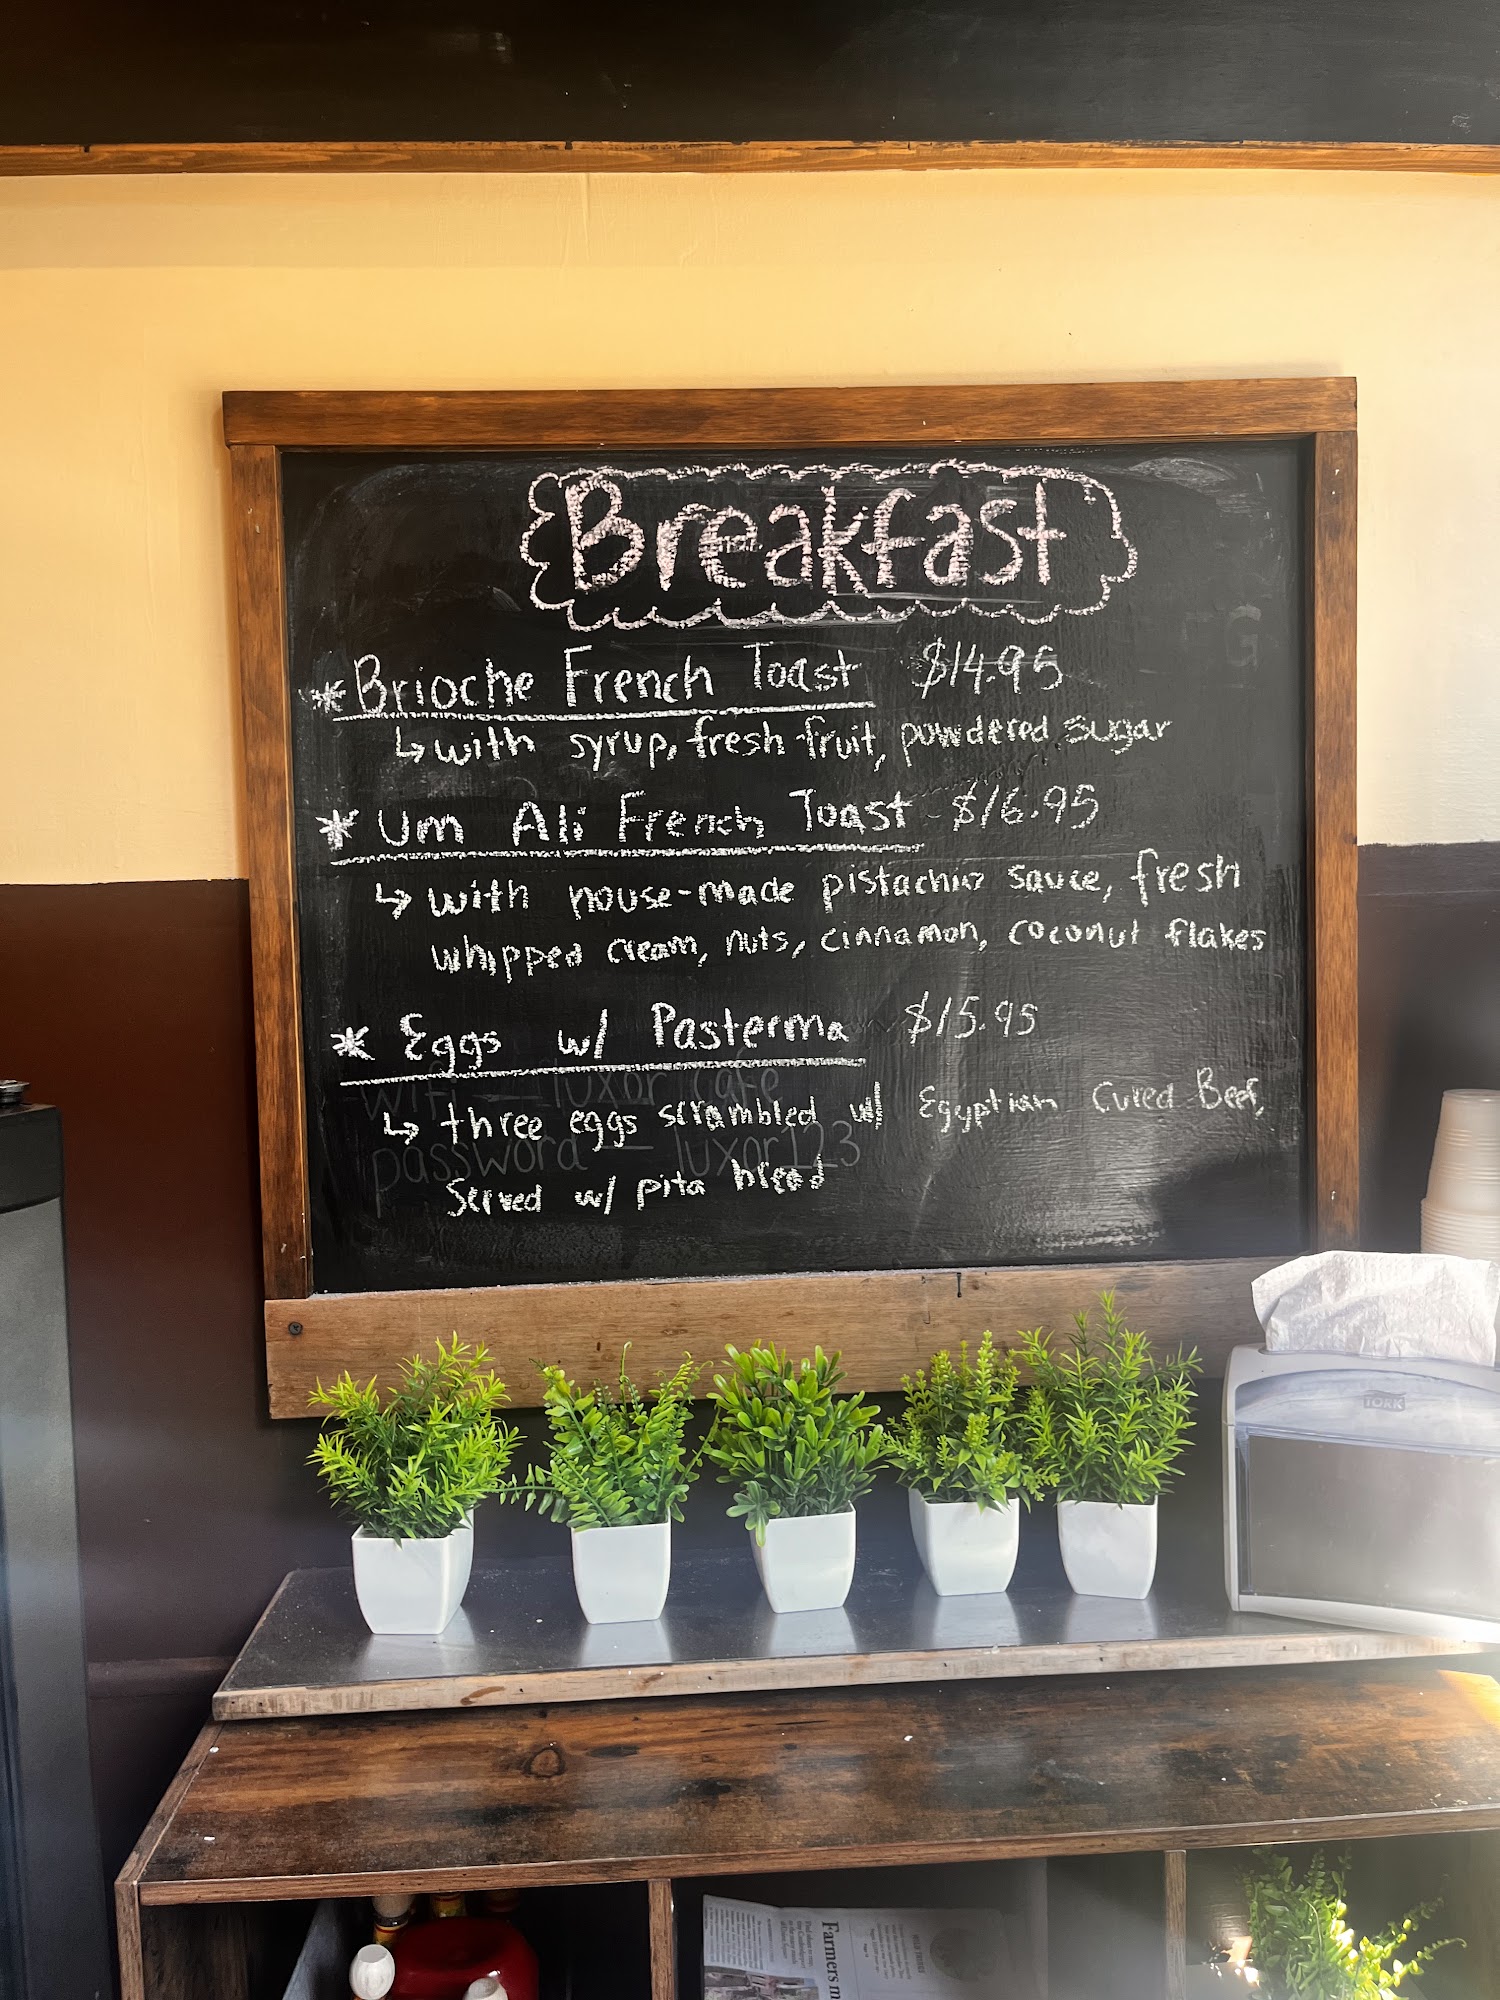 Breakfast
* Brioche French Toast $14.95
↳ with syrup, fresh fruit, powdered sugar
* Um Ali French Toast - $16.95
↳ with house-made pistachio sauce, fresh
whipped cream, nuts, cinnamon, coconut flakes
* Eggs w/ Pasterma $15.95
wifi — luxor cafe
↳ three eggs scrambled w/ Egyptian Cured Beef,
password — luxor123
Served w/ pita bread
TORK
Farmers m